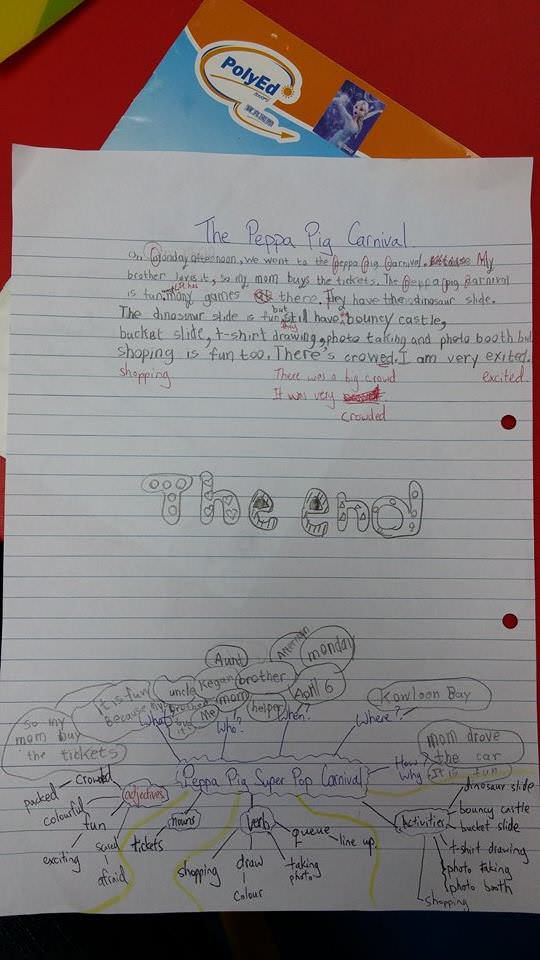 PolyEd
寶異國際
The Peppa Pig Carnival
On Monday afternoon, we went to the Peppa Pig Carnival. My
brother loves it, so my mom buys the tickets. The Peppa pig Carnival
is fun. It has many games there. They have then dinosaur slide.
The dinosaur slide is fun, but still have bouncy castle,
they
bucket slide, t-shirt drawing, photo taking and photo booth but
shoping is fun too. There's crowed. I am very exited.
shopping There was a big crowd excited.
It was very
crowded
The end
Aunt Afternoon monday
it is fun uncle Kegan brother April 6 Kowloon Bay
because my brother mom helper
so my Me
mom buy What? Who? When? Where? mom drove
the tickets the car
How?
Why It is fun
Peppa Pig Super Pop Carnival
adjectives
crowded
packed
colourful
fun
exciting
scared
afraid
nouns
tickets
verb
shopping
draw
colour
taking photo
queue
line up
Activities
dinosaur slide
bouncy castle
bucket slide
t-shirt drawing
photo taking
photo booth
shopping